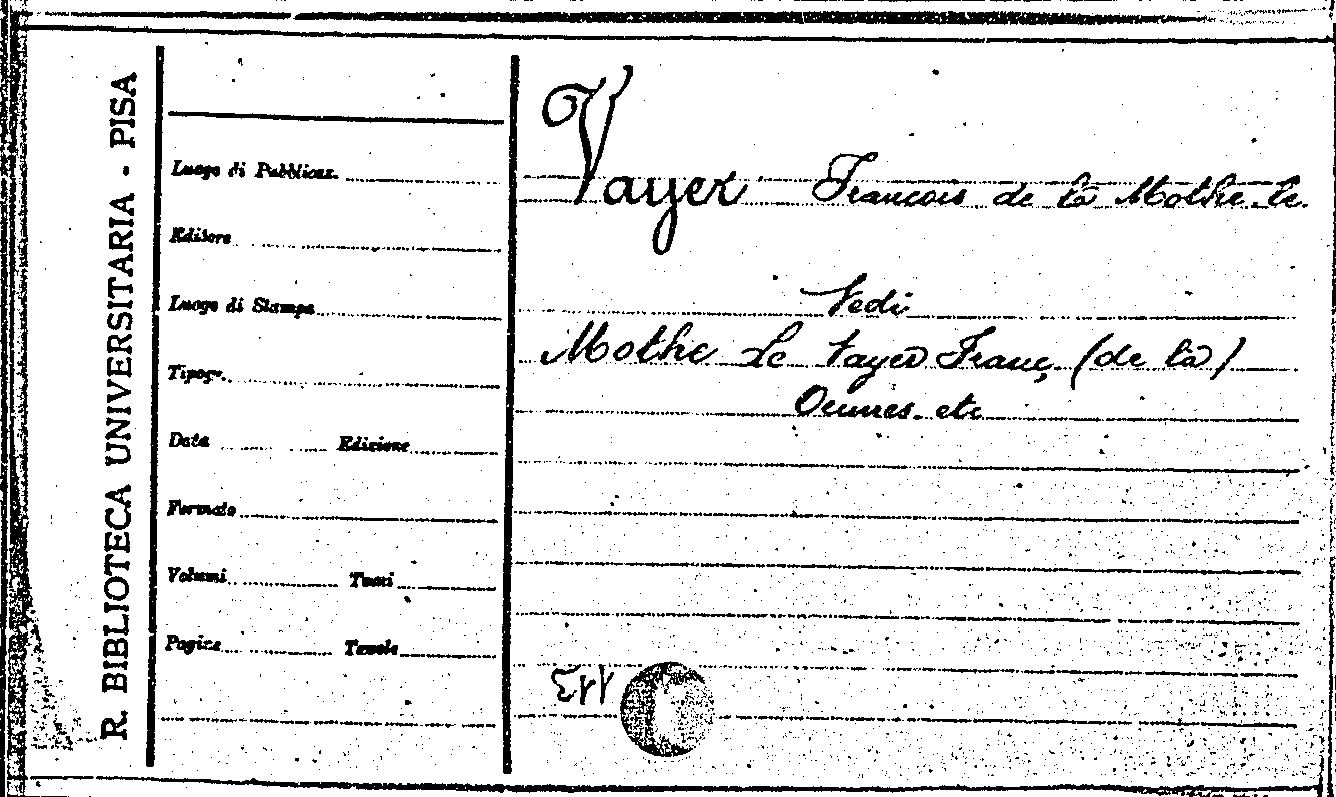 R. BIBLIOTECA UNIVERSITARIA - PISA
Luogo di Pubblicaz.
Editore
Luogo di Stampa
Tipogr.
Data Edizione
Formato
Volumi Tomi
Pagine Tavole
Vayer François de la Mothe le.
Vedi
Mothe Le Vayer Franç (de la)
Oeuvres. etc